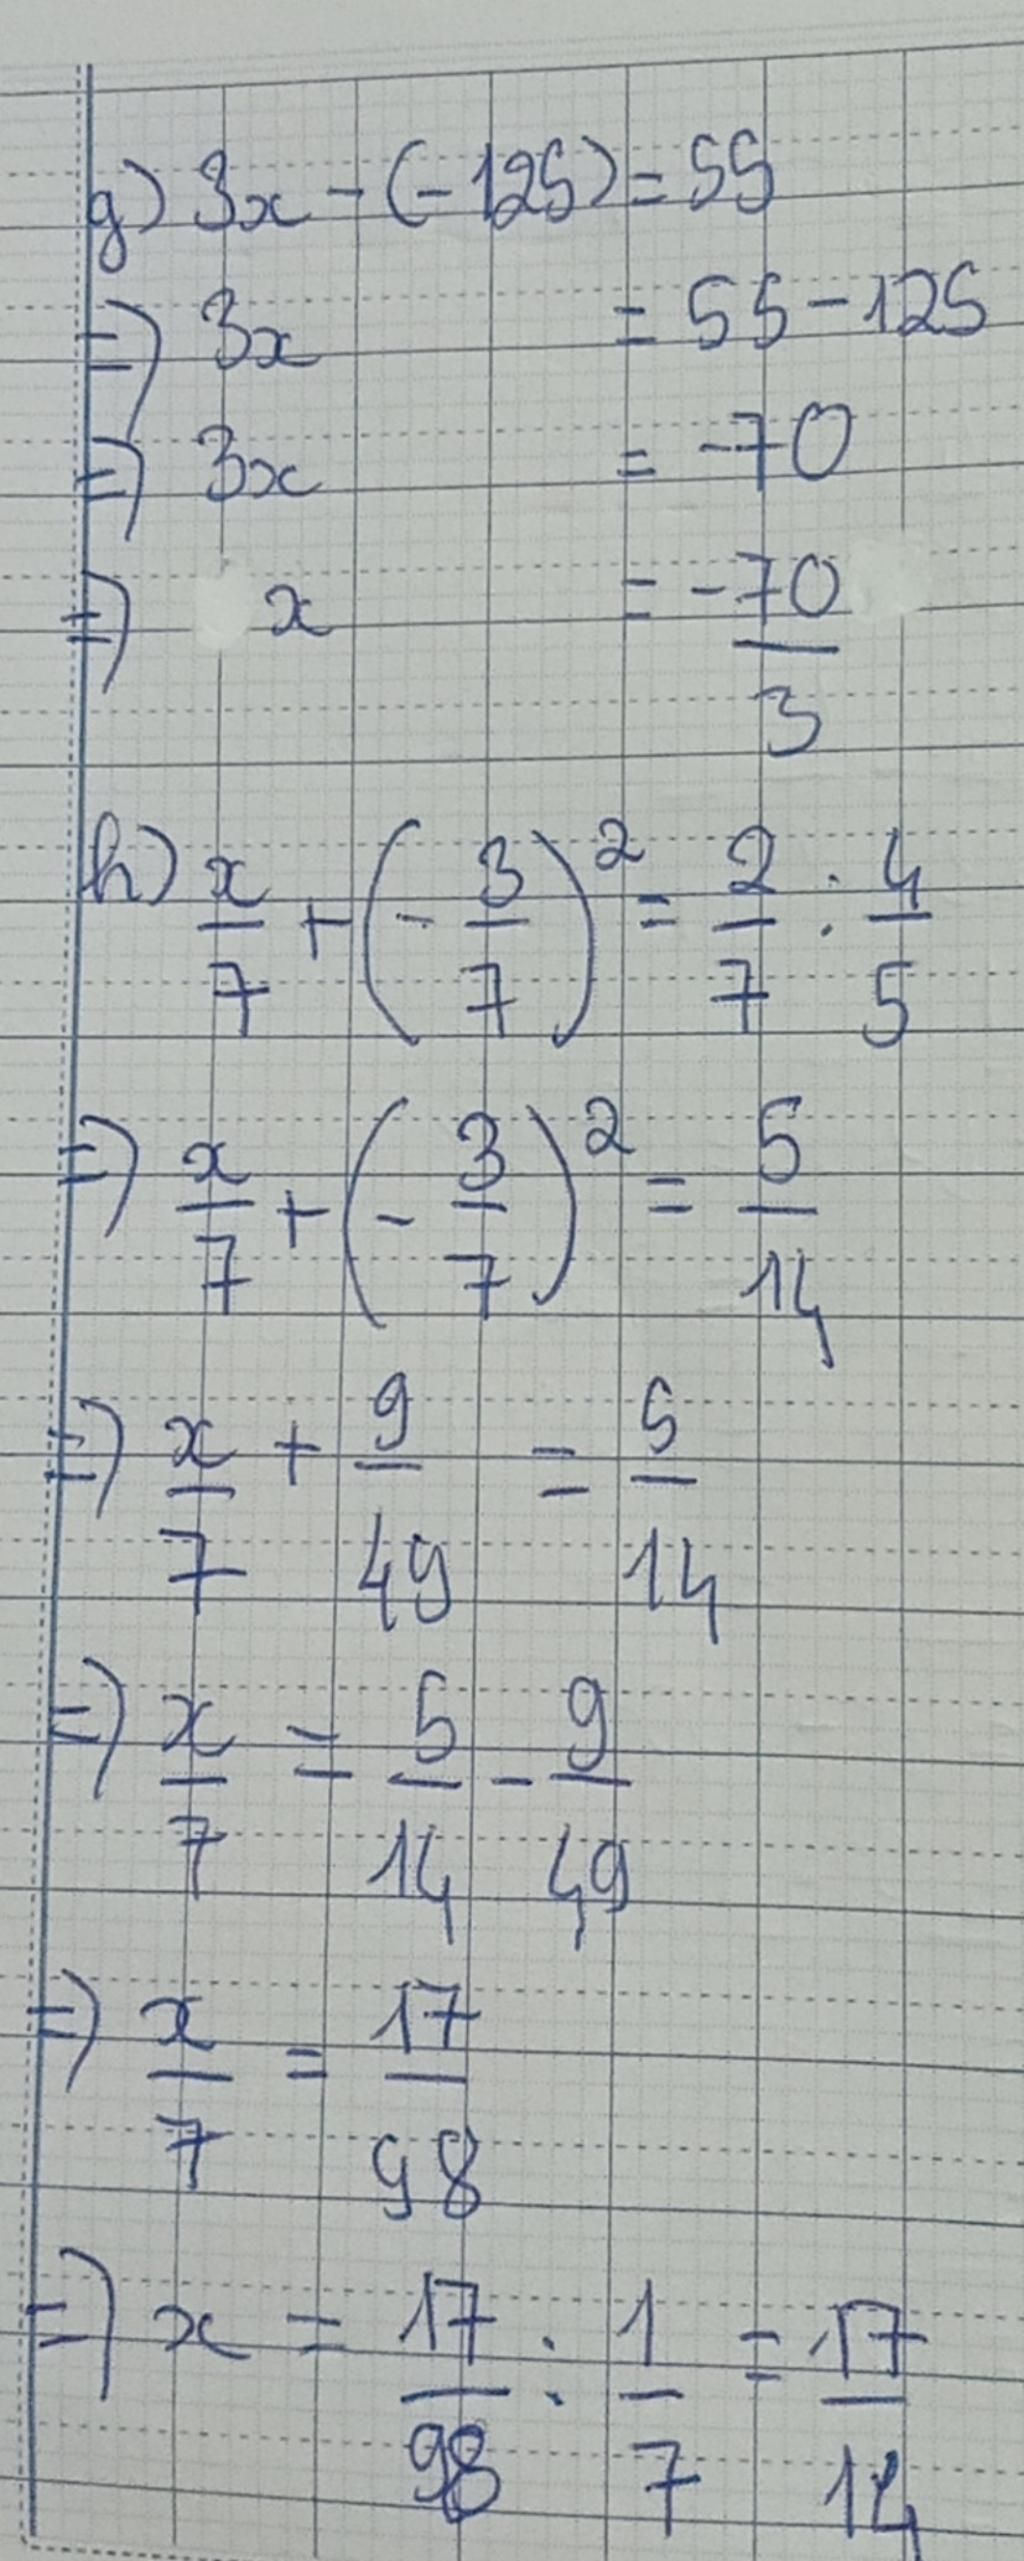 g) 3x - (-125) = 55
=) 3x = 55 - 125
=) 3x = -70
=) x = -70/3
h) x/7 + (-3/7)² = 2/7 : 4/5
=) x/7 + (-3/7)² = 5/14
=) x/7 + 9/49 = 5/14
=) x/7 = 5/14 - 9/49
=) x/7 = 17/98
=) x = 17/98 : 1/7 = 17/14